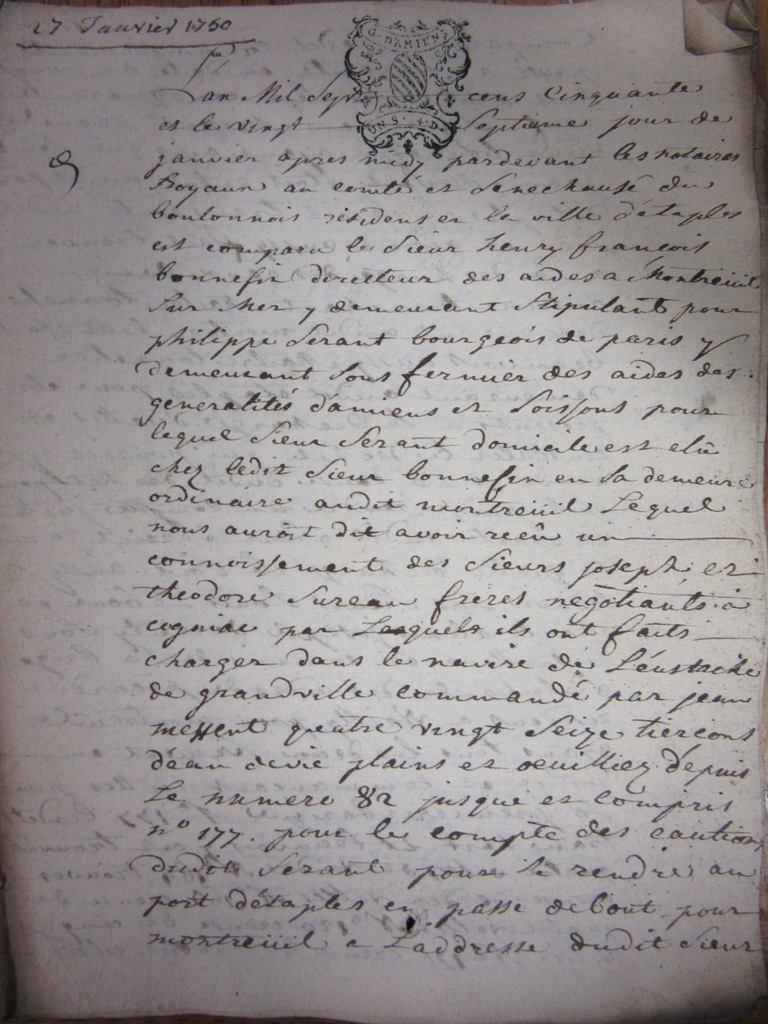 27 Janvier 1750
G. DAMIENS
UN S. 4. D.
Lan Mil Sept cens Cinquante
et le vingt Septieme jour de
janvier apres midy pardevant les notaires
Royaux au comté et Senechaussé du
boulonnois résidens en la ville détaples
est comparu le Sieur henry francois
bonnefin directeur des aides a Montreuil
Sur Mer y demeurant Stipulant pour
philippe Serant bourgeois de paris y
demeurant Sous fermier des aides des
generalités damiens et Soissons pour
lequel Sieur Serant domicile est elû
chez ledit Sieur bonnefin en Sa demeure
ordinaire audit montreüil Lequel
nous auroit dit avoir reçû un
connoissement des Sieurs joseph et
theodore Sureau freres negotiants a
cogniac par Lesquels ils ont faits
charger dans le navire de Léustache
de grandville commandé par jean
messent quatre vingt Seize tierçons
déau devie plains et oeuilliez depuis
Le numero 82 jusque et compris
n° 177. pour le compte des cautions
dudit Serant pour Se rendre au
port détaples en passe debout pour
montreüil a Laddresse dudit Sieur